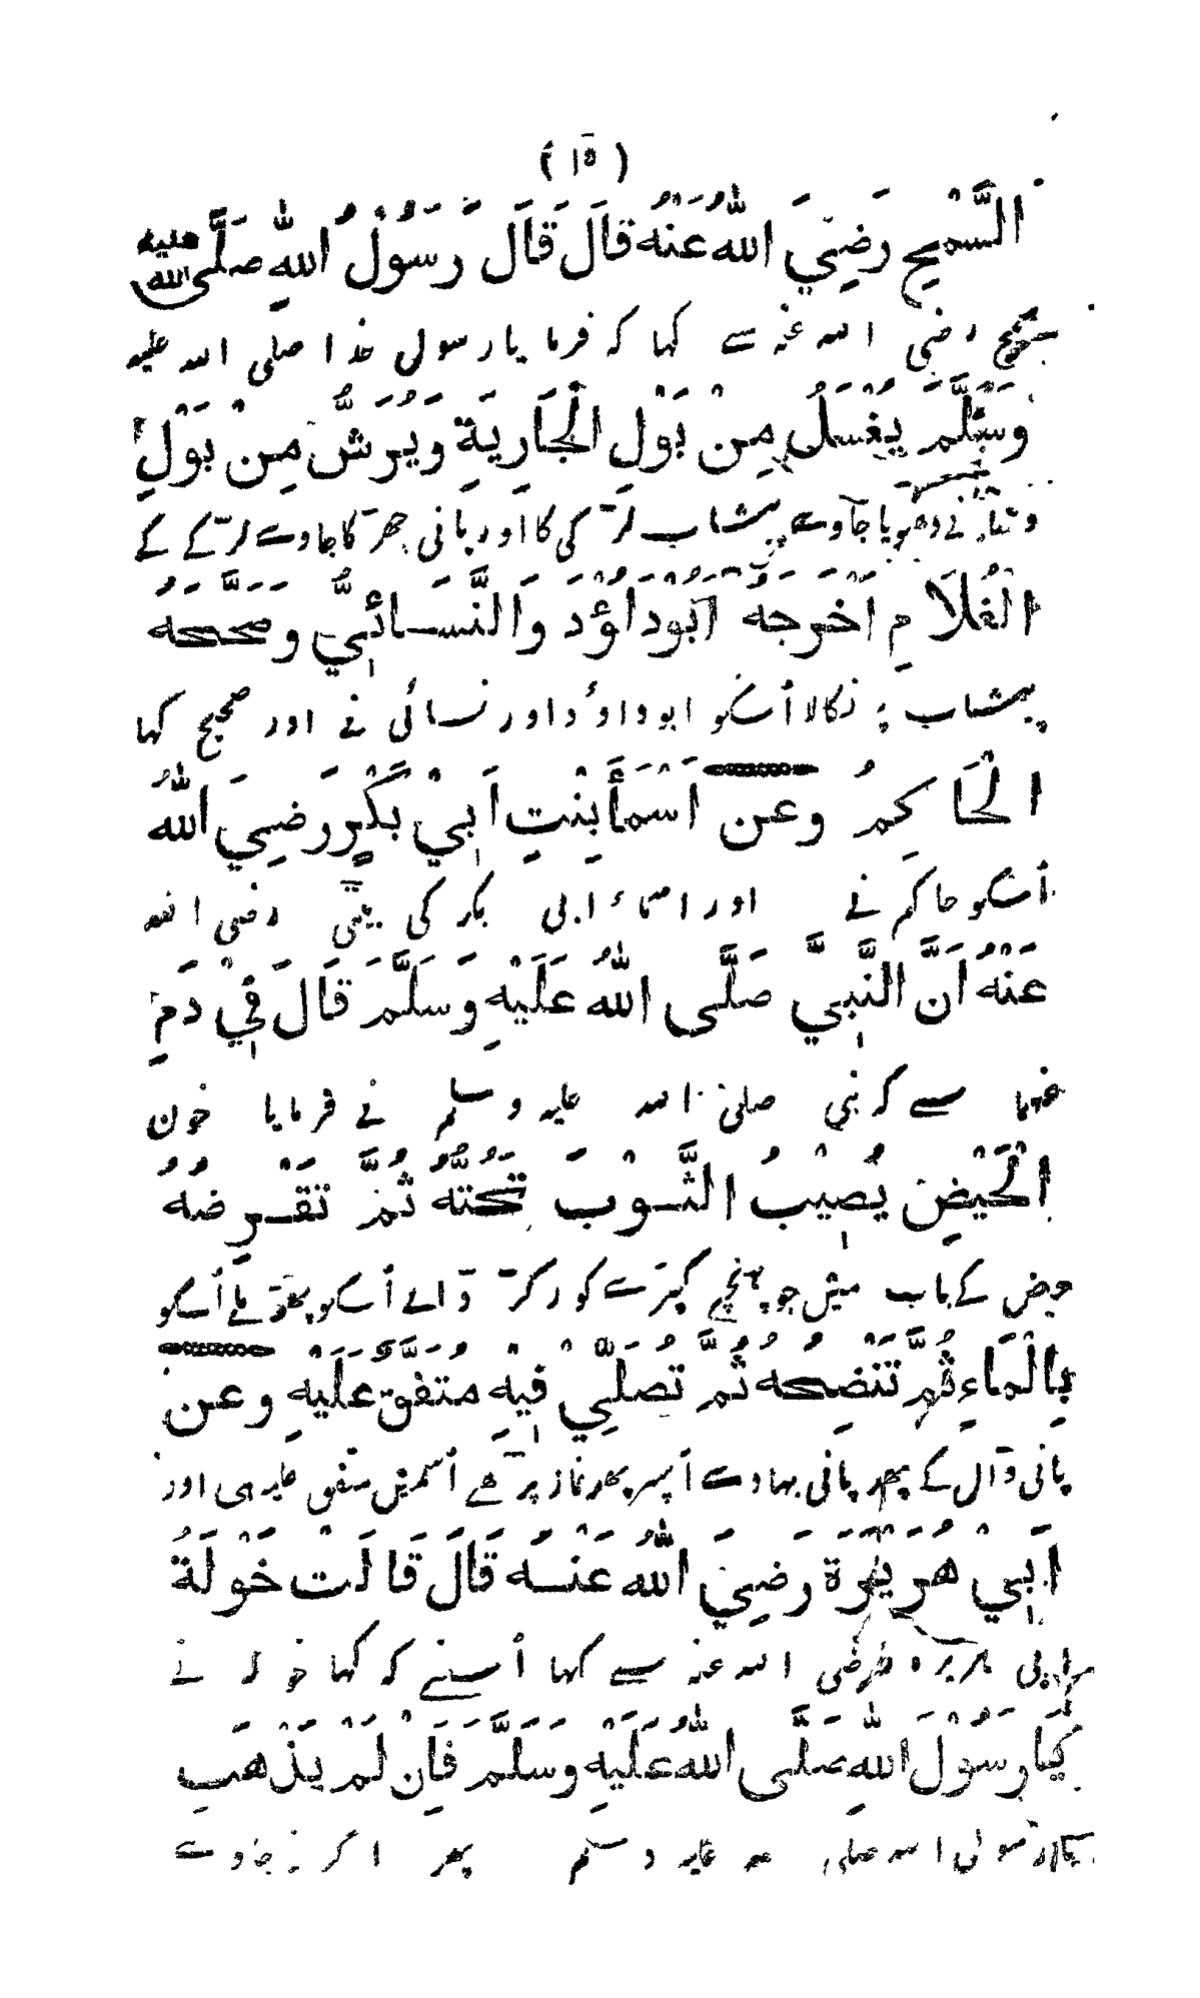 (١٥)
السَّمْحِ رَضِيَ اللهُ عَنْهُ قَالَ قَالَ رَسُوْلُ اللهِ صَلَّى اللهُ عَلَيْهِ
رضی اللہ عنہ سے کہا کہ فرمایا رسول خدا صلی اللہ علیہ
وَسَلَّمَ يُغْسَلُ مِنْ بَوْلِ الْجَارِيَةِ وَيُرَشُّ مِنْ بَوْلِ
وسلم نے دھویا جاوے پیشاب لڑکی کا اور پانی چھڑکا جاوے لڑکے کے
الْغُلَامِ اَخْرَجَهُ اَبُوْدَاوُدَ وَالنَّسَائِيُّ وَصَحَّحَهُ
پیشاب پر نکالا اُسکو ابوداؤد اور نسائی نے اور صحیح کہا
الْحَاكِمُ وَعَنْ اَسْمَاَ بِنْتِ اَبِيْ بَكْرٍ رَضِيَ اللهُ
اُسکو حاکم نے اور اسماء ابی بکر کی بیٹی رضی اللہ
عَنْهُ اَنَّ النَّبِيَّ صَلَّى اللهُ عَلَيْهِ وَسَلَّمَ قَالَ فِيْ دَمِ
عنہما سے کہ نبی صلی اللہ علیہ وسلم نے فرمایا خون
الْحَيْضِ يُصِيْبُ الثَّوْبَ تَحُتُّهُ ثُمَّ تَقْرِضُهُ
حیض کے باب میں جو پہنچے کپڑے کو رگڑ ڈالے اُسکو پھر ملے اُسکو
بِالْمَاءِ ثُمَّ تَنْضِحُهُ ثُمَّ تُصَلِّيْ فِيْهِ مُتَّفَقٌ عَلَيْهِ وَعَنْ
پانی ڈال کے پھر پانی بہاوے اُسپر پھر نماز پڑھے اُسمیں متفق علیہ ہی اور
اَبِيْ هُرَيْرَةَ رَضِيَ اللهُ عَنْهُ قَالَ قَالَتْ خَوْلَةُ
ابی ہریرہ رضی اللہ عنہ سے کہا اُسنے کہ کہا خولہ نے
يَا رَسُوْلَ اللهِ صَلَّى اللهُ عَلَيْهِ وَسَلَّمَ فَاِنْ لَمْ يَذْهَبِ
یا رسول اللہ صلی اللہ علیہ وسلم پھر اگر نہ جاوے